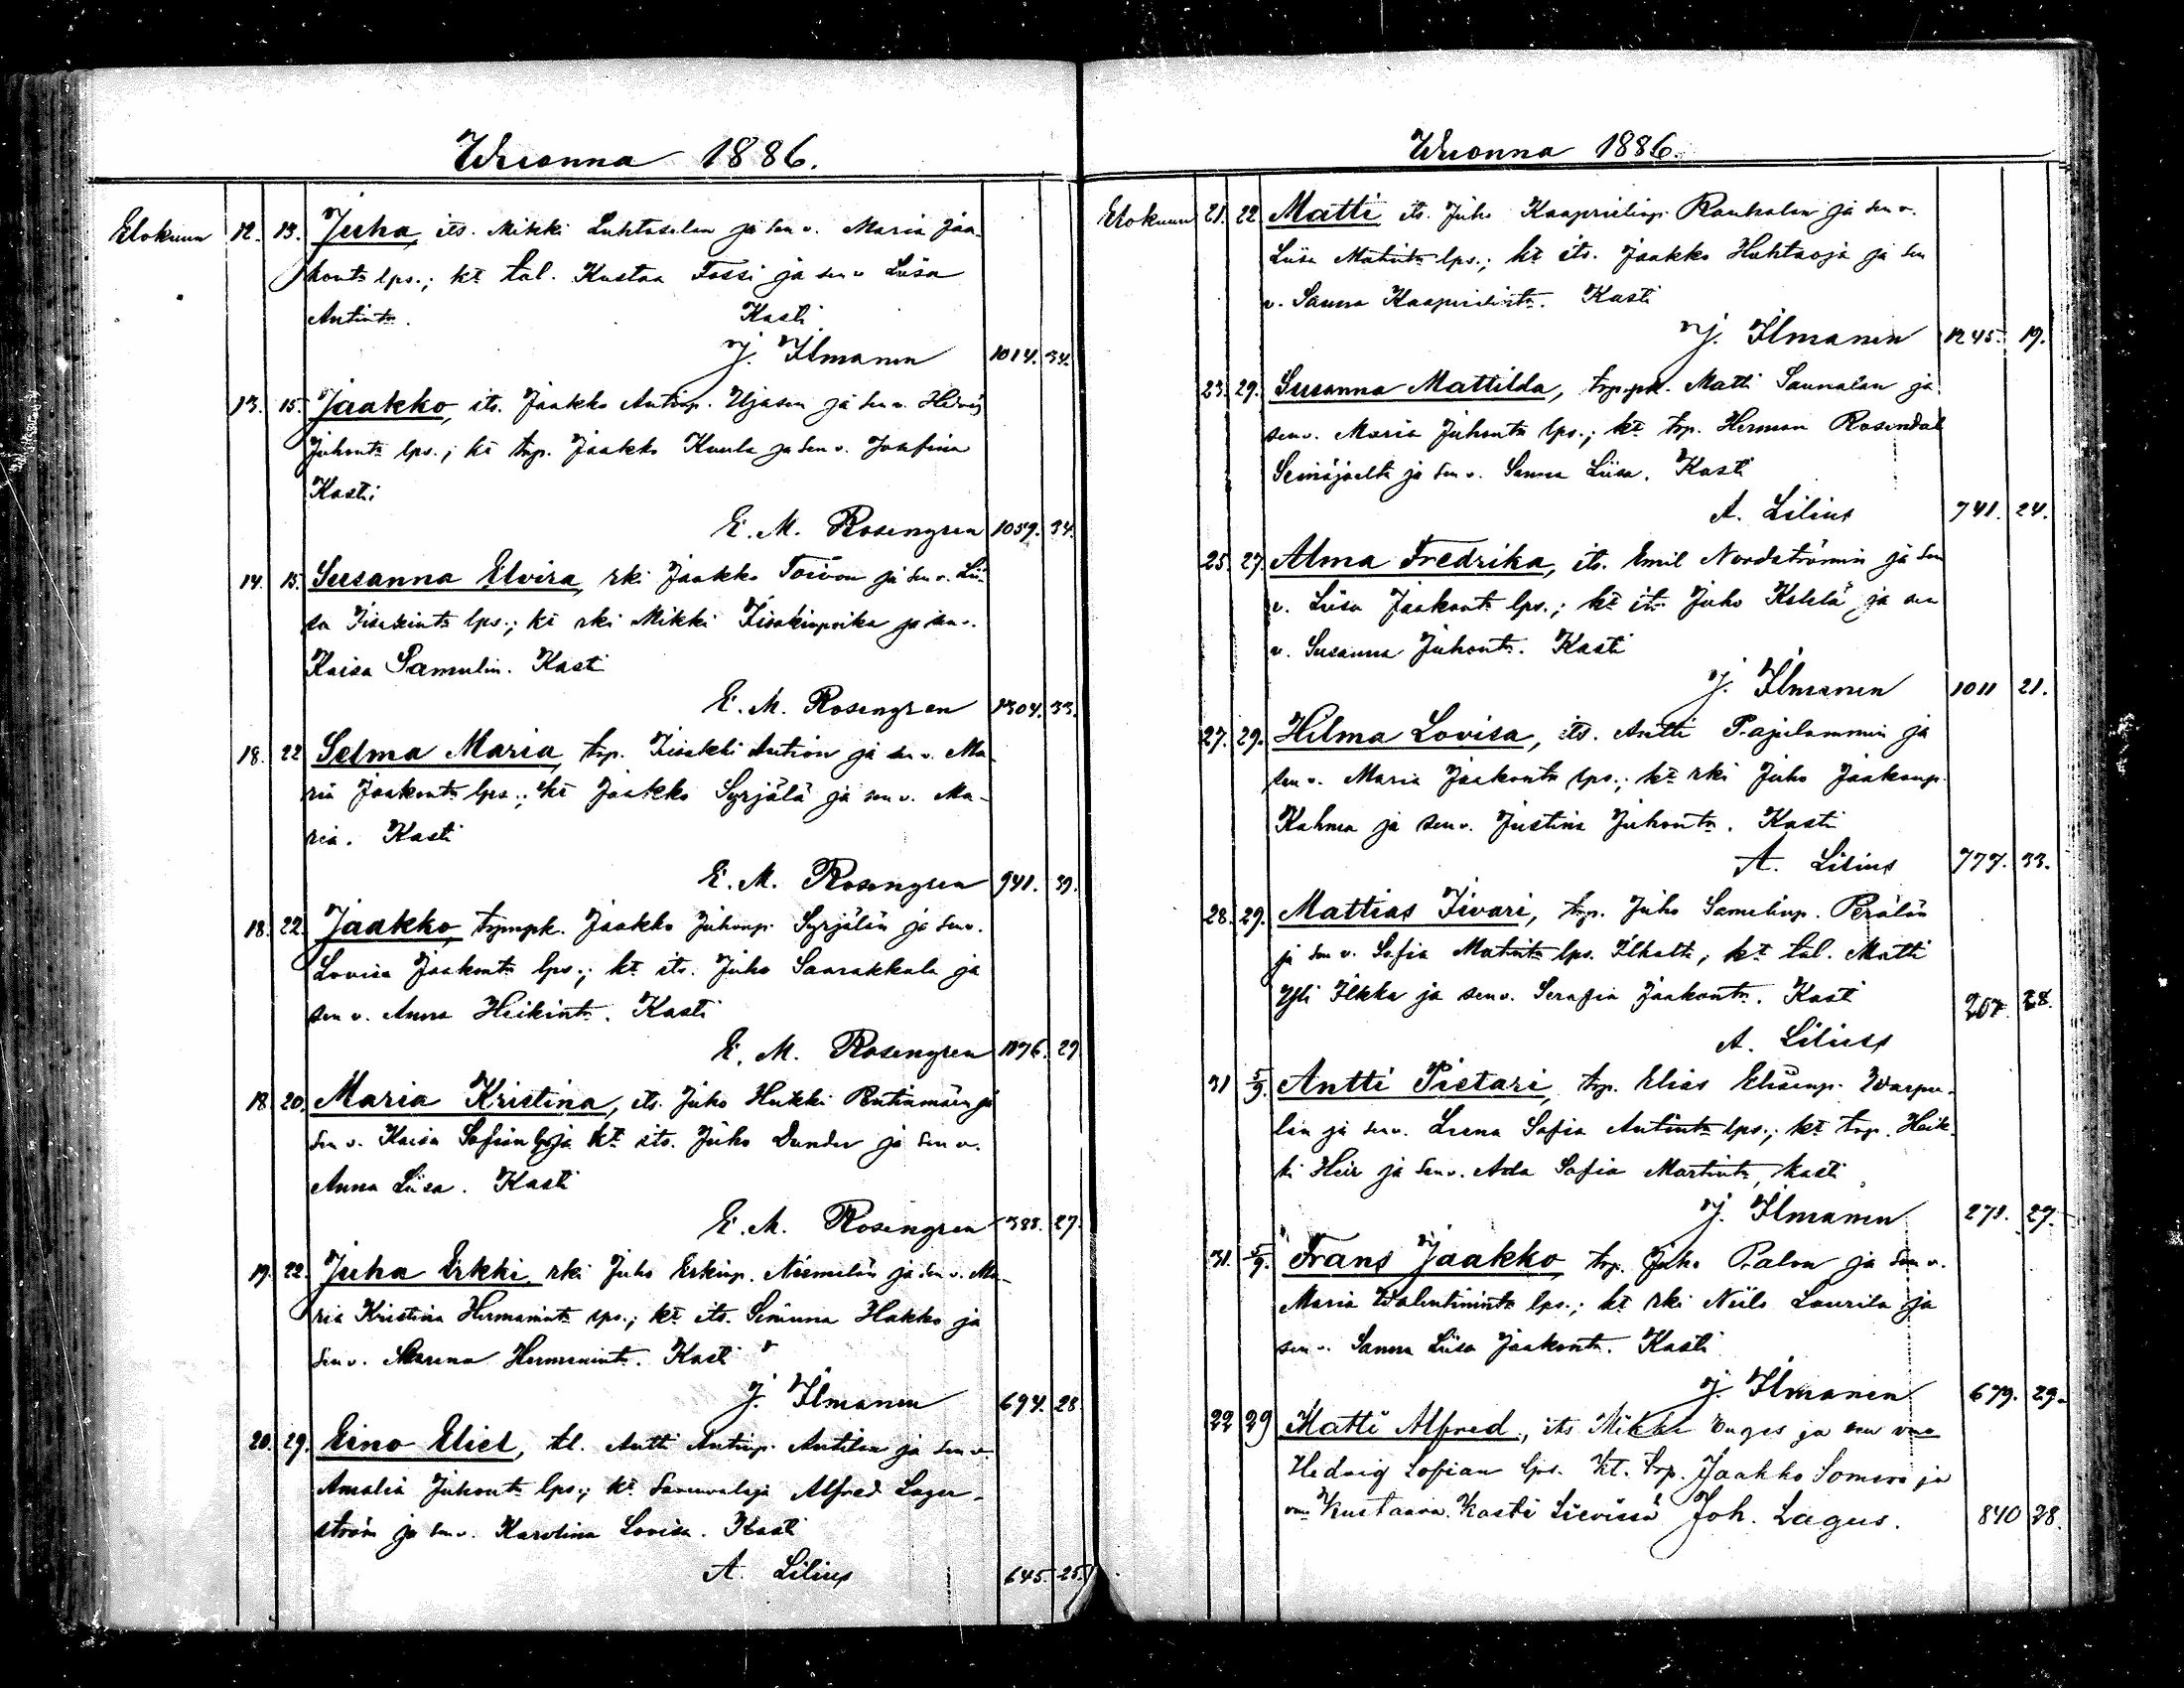 Wuonna 1886.
Elokuun 12. 13. Juha, its. Mikki Luhtasalan ja sen v. Maria Jaa-
konts lps.; kt tal. Kustaa Fossi ja sen v. Liisa
Antints. Kasti
J. Ilmanen 1014. 34.
13. 15. Jaakko, its. Jaakko Antinp. Ujasen ja sen v. Hedvig
Juhonts lps.; kt trp. Jaakko Kuula ja sen v. Josefina
Kasti
E. M. Rosengren 1059. 34.
14. 15. Susanna Elvira, rki Jaakko Toivon ja sen v. Lii-
sa Iisakints lps.; kt rki Mikki Iisakinpoika ja sen v.
Kaisa Samulin. Kasti
E. M. Rosengren 1304. 33.
18. 22 Selma Maria, trp. Iisakki Antion ja sen v. Ma-
ria Jaakonts lps.; kt Jaakko Syrjälä ja sen v. Ma-
ria. Kasti
E. M. Rosengren 941. 39.
18. 22. Jaakko, trpnpk. Jaakko Juhonp. Syrjälän ja sen v.
Lovisa Jaakonts lps.; kt its. Juho Saarakkala ja
sen v. Anna Heikints. Kasti
E. M. Rosengren 1076. 29
18. 20. Maria Kristina, its. Juho Hukki ja
sen v. Kaisa Sofian lps ja kt its. Juho Dunder ja sen v.
Anna Liisa. Kasti
E. M. Rosengren 388. 27.
19. 22. Juha Erkki, rki Juho Erkinp. Niemelän ja sen v. Ma-
ria Kristina Hermanints lps.; kt its. Simuna Hakko ja
sen v. Hermanints. Kasti
J. Ilmanen 694. 28
20. 29. Eino Eliel, tl. Antti Antinp. Antilan ja sen v.
Amalia Juhonts lps.; kt Alfred Lager-
ström ja sen v. Karolina Lovisa. Kasti
A. Lilius 645. 25.
Wuonna 1886.
Elokuun 21. 22. Matti its. Juho Kaaprielinp. Rauhalan ja sen v.
Liisa Matints lps.; kt its. Jaakko Huhtaoja ja sen
v. Sanna Kaaprielints. Kasti
J. Ilmanen 1245. 19.
23. 29. Susanna Mattilda, trpnpk. Matti Saunalan ja
sen v. Maria Juhonts lps.; kt trp. Herman Rosendal
Seinäjoelta ja sen v. Sanna Liisa. Kasti
A. Lilius 741. 24.
25. 27. Alma Fredrika, its. Emil Nordströmin ja sen
v. Liisa Jaakonts lps.; kt its Juho Ketelä ja sen
v. Susanna Juhonts. Kasti
J. Ilmanen 1011 21.
27. 29. Hilma Lovisa, its. Antti Pajulammin ja
sen v. Maria Jaakonts lps.; kt rki Juho Jaakonp.
Kahma ja sen v. Justina Juhonts. Kasti
A. Lilius 777. 33.
28. 29. Mattias Iivari, trp. Juho Samelinp. Perälän
ja sen v. Sofia Matints lps. Ilkalta; kt tal. Matti
Yli Ilkka ja sen v. Serafia Jaakonts. Kasti 207. 28.
A. Lilius
31 5/9. Antti Pietari, trp. Elias Eliaanp. Warpu-
lan ja sen v. Leena Sofia Antints lps.; kt trp. Heik-
ki Heir ja sen v. Ada Sofia Martints, Kasti
J. Ilmanen 271. 27.
31. 5/9. Frans Jaakko, trp. Juho Palon ja sen v.
Maria Walentinints lps.; kt rki Niilo Laurila ja
sen v. Sanna Liisa Jaakonts. Kasti
J. Ilmanen 679. 29.
22 29 Matti Alfred, its Mikki Enges ja sen vmo
Hedvig Sofian lps. Kt. trp. Jaakko Somero ja
vmo Kustaava. Kasti Sievissä Joh. Lagus. 840 28.